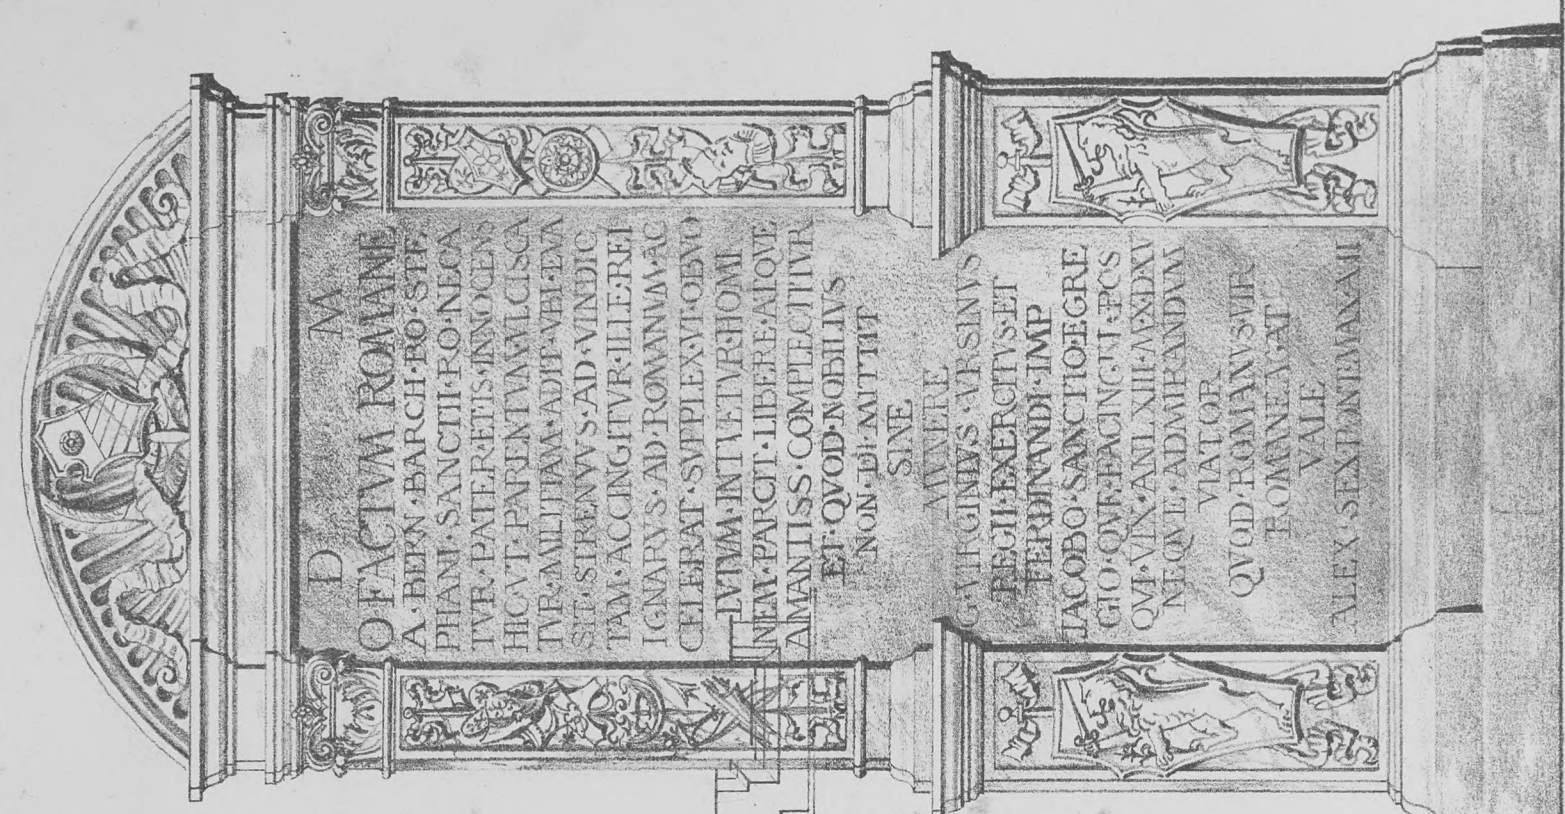 D M
O FACTVM ROMANE
A·BERN·BARCH·PO·STE
PHANI·SANCTII·RO·NECA
TVR·PATER·ET·IS·INNOCENS
HIC·VT·PARENTVM·VLCISCA
TVR·MILITIAM·ADIT·VBI·EVA
SIT·STRENVVS·AD·VINDIC
TAM·ACCINGITVR·ILLE·REI
IGNARVS·AD·ROM·NVM·AC
CELERAT·SVPPLEX·VT·OBVO
LVTVM·INTVETVR·HOMI
NEM·PARCIT·LIBERE·ATQVE
AMANTISS·COMPLECTITVR
ET·QVOD·NOBILIVS
NON·DIMITTIT
SINE
MVNERE
G·VIRGINIVS·VRSINVS
REGII·EXERCITVS·ET
FERDINANDI·IMP
IACOBO·SANCTIO·EGRE
GIO·QVE·FACINGVL·POS
QVI·VIX·AN·LXIII·M·X·D·XV
NEQVE·ADMIRANDVM
VIATOR
QVOD·ROMANVS·VIR
ROMANE·AGAT
VALE
ALEX·SEXT·PONT·MAX·AN·II